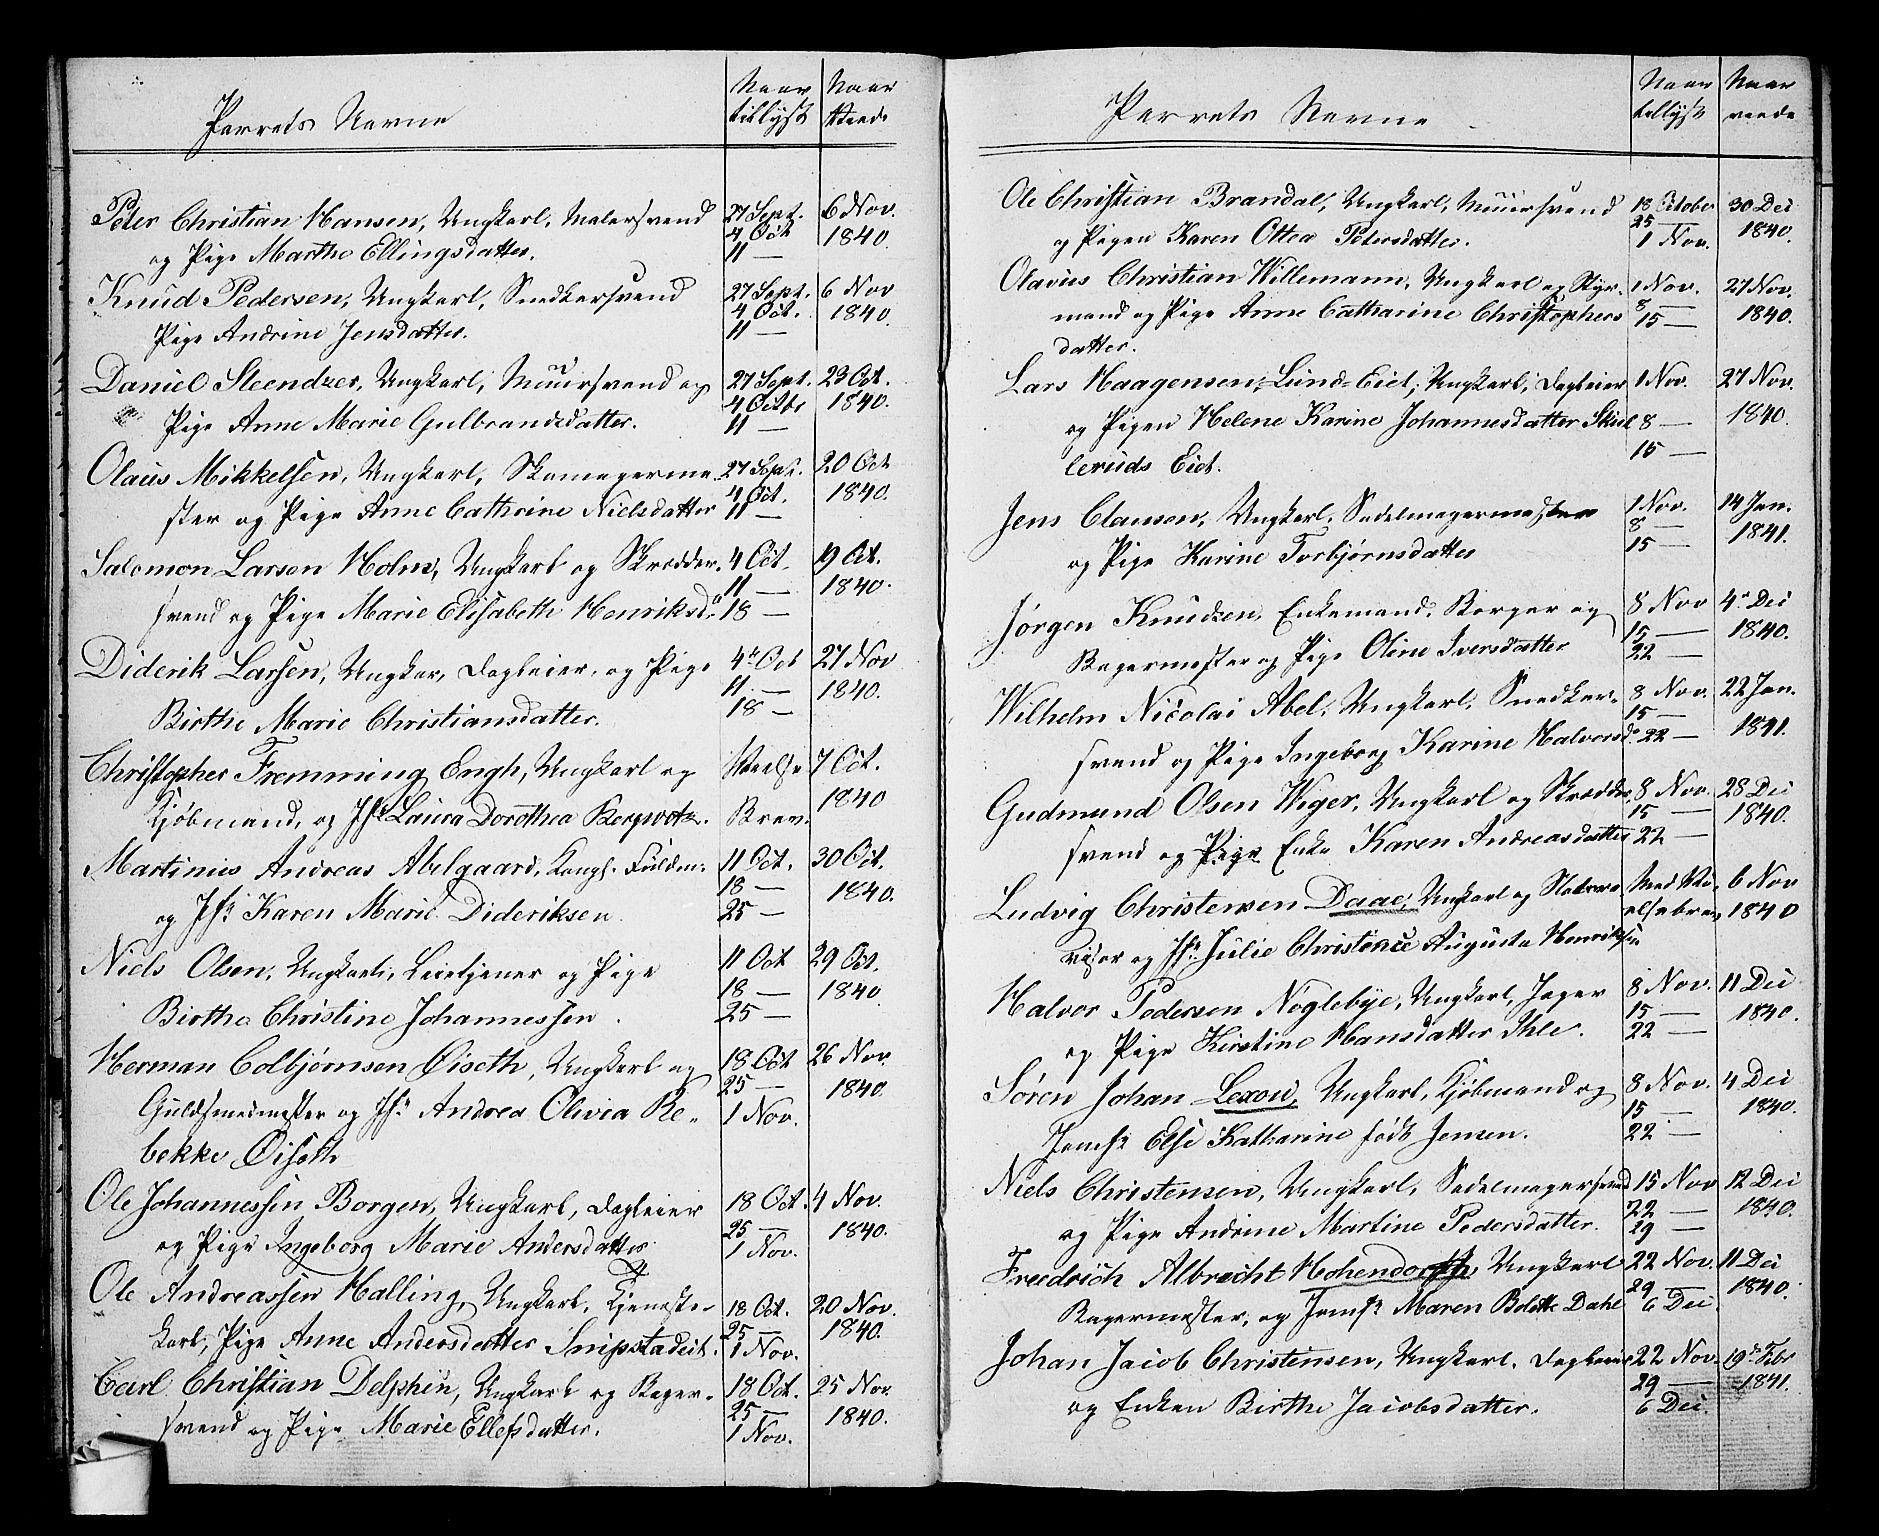 Parrets Navne
Naar tillyst
Naar viede
Peter Christian Hansen, Ungkarl, Malersvend 27 Sept. 6 Nov.
og Pige Marthe Ellingsdatter. 4 Oct 1840.
11 —
Knud Pedersen, Ungkarl, Snedkersvend 27 Sept. 6 Nov
Pige Andrine Jensdatter. 4 Oct. 1840.
11 —
Daniel Steendzer, Ungkarl, Muursvend og 27 Sept. 23 Oct.
Pige Anne Marie Gulbrandsdatter. 4 Octbr 1840.
11 —
Olaus Mikkelsen, Ungkarl, Skomagerme- 27 Sept. 20 Oct
ster og Pige Anne Cathrine Nielsdatter 4 Oct. 1840.
11 —
Salomon Larsen Holm, Ungkarl og Skrædder- 4 Oct. 19 Oct.
svend og Pige Marie Elisabeth Henriksd. 11 — 1840.
18 —
Diderik Larsen, Ungkar, Dagleier, og Pige 4 Oct 27 Nov
Birthe Marie Christiansdatter. 11 — 1840.
18 —
Christopher Fremming Engh, Ungkarl og 7 Oct.
Kjøbmand, og Jfr Laura Dorothea Brev. 1840
Martinus Andreas Abelgaard, Kongl. Fuldm: 11 Oct. 30 Oct.
og Jfr Karen Marie Dideriksen. 18 — 1840.
25 —
Niels Olsen, Ungkarl, Leietjener og Pige 11 Oct 29 Oct.
Birthe Christine Johannessen. 18 — 1840.
25 —
Herman Colbjørnsen Øiseth, Ungkarl og 18 Oct 26 Nov.
Guldsmedmester og Jfr Andrea Olivia Re- 25 — 1840.
bekke Øiseth 1 Nov.
Ole Johannessen Borgen, Ungkarl, Dagleier 18 Oct. 4 Nov.
og Pige Ingeborg Marie Andersdatter 25 — 1840.
1 Nov.
Ole Andreassen Halling, Ungkarl, Tjeneste- 18 Oct. 20 Nov.
karl, Pige Anne Andersdatter Snipstadeit. 25 — 1840.
1 Nov.
Carl Christian Delphin, Ungkarl og Bager- 18 Oct. 25 Nov.
svend og Pige Marie Ellefsdatter. 25 — 1840.
1 Nov.
Parrets Navne
Naar tillyst
Naar viede
Ole Christian Brandal, Ungkarl, Muursvend 18 October 30 Dec
og Pigen Karen Ottea Petersdatter. 25 — 1840.
1 Nov.
Olavus Christian Willemann, Ungkarl og Styr- 1 Nov. 27 Nov.
mand og Pige Anne Catharine Christophers 8 1840.
datter. 15 —
Lars Haagensen, Lund-Eiet, Ungkarl, Dagleier 1 Nov. 27 Nov.
og Pigen Helene Karine Johannesdatter Skul 8 — 1840.
leruds Eiet. 15 —
Jens Clausen, Ungkarl, Sadelmagermester 1 Nov. 14 Jan.
og Pige Karine Torbjørnsdatter 8 — 1841.
15 —
Jørgen Knudzen, Enkemand, Borger og 8 Nov 4 Dec
Bagermester og Pige Oline Iversdatter 15 — 1840.
22 —
Wilhelm Nicolai Abel, Ungkarl, Snedker- 8 Nov. 22 Jan.
svend og Pige Ingeborg Karine Halvorsd. 15 — 1841.
22 —
Gudmund Olsen Wiger, Ungkarl og Skrædder 8 Nov. 28 Dec
svend og Pige Enke Karen Andreasdatter 15 — 1840.
22 —
Ludvig Christensen Daae, Ungkarl og Med Vi- 6 Nov
visor og Jfr. Julie Christence Augusta Henriksen elsebrev 1840
Halvor Pedersen Noglebye, Ungkarl, Jæger 8 Nov. 11 Dec
og Pige Kirstine Hansdatter Ihle. 15 — 1840.
22 —
Søren Johan Lexow, Ungkarl, Kjøbmand og 8 Nov. 4 Dec
Jomfr Else Katharine født Jensen. 15 — 1840.
22 —
Niels Christensen, Ungkarl, Sadelmagersvend 15 Nov 12 Dec
og Pige Andrine Martine Pedersdatter. 22 — 1840.
29 —
Freedrich Albrecht Hohendorff, Ungkarl 22 Nov. 11 Dec
Bagermester, og Jomfr Maren Bolette Dahl 29 — 1840.
6 Dec
Johan Jacob Christensen, Ungkarl, Dagleier 22 Nov. 19 Febr
og Enken Birthe Jacobsdatter. 29 — 1841.
6 Dec.